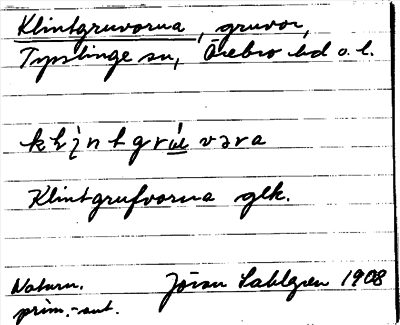 Klintgruvorna, gruvor,
Tysslinge sn, Örebro hd o. l.
Klintgrufvorna glk.
Naturn. Jöran Sahlgren 1908
prim.-aut.